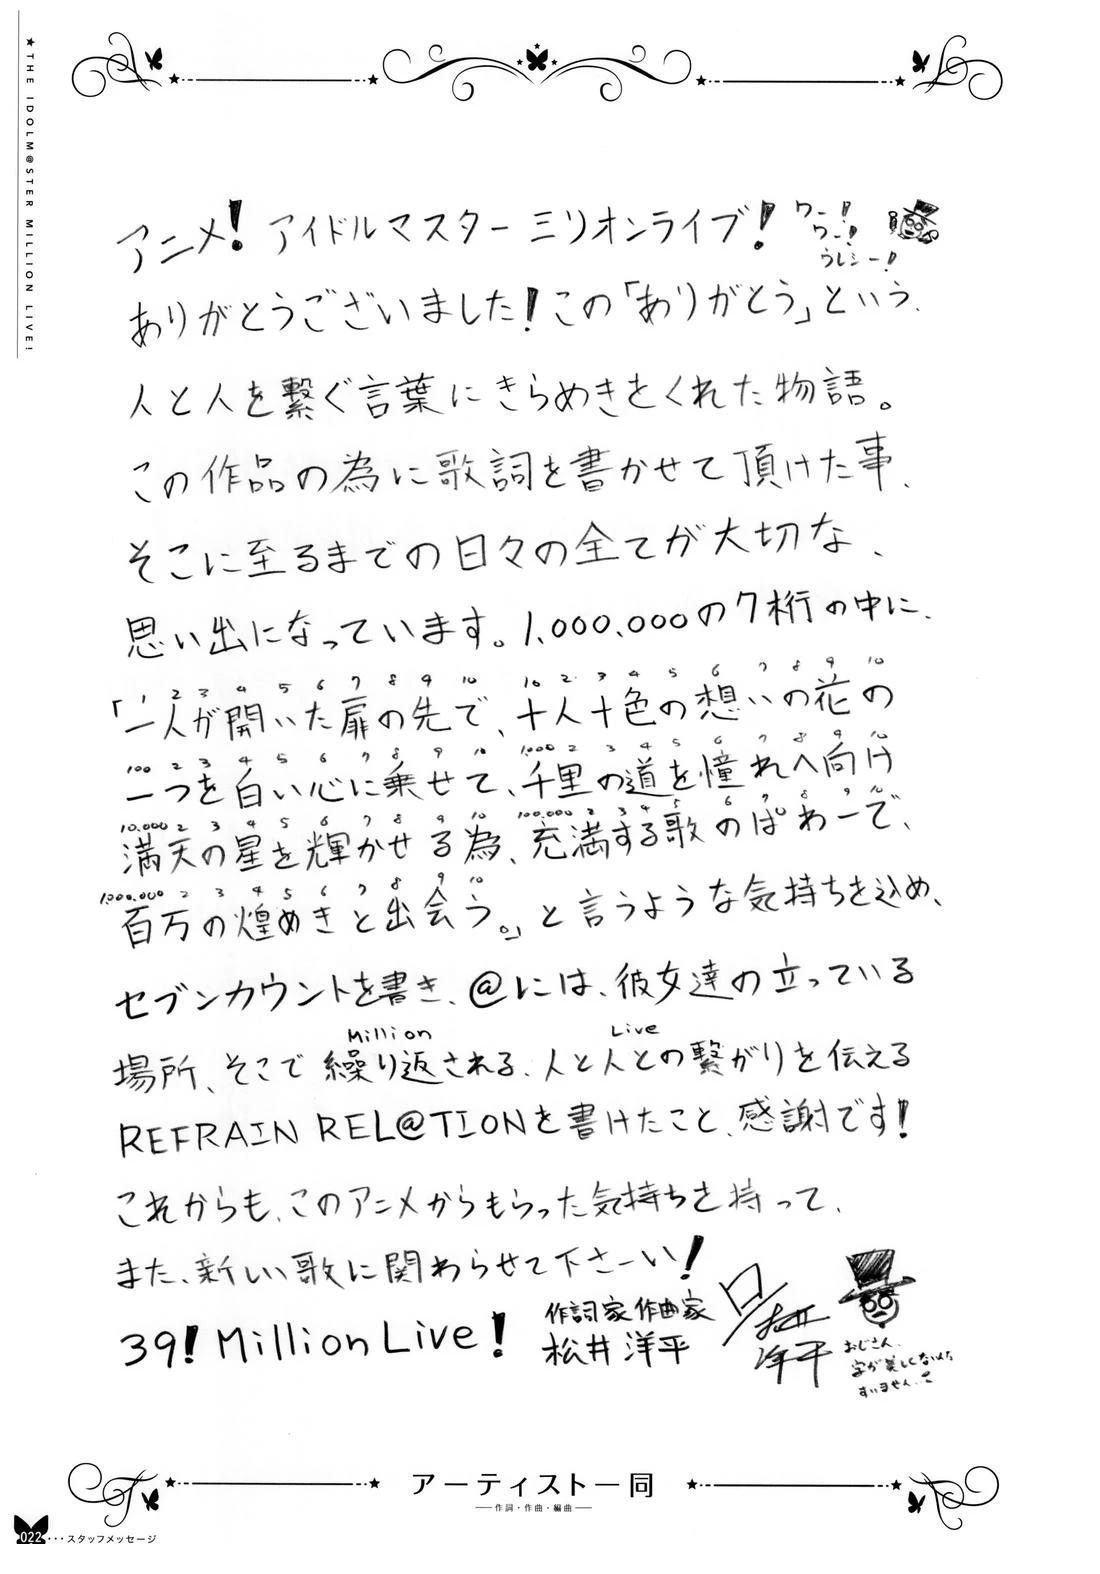 ★THE IDOLM@STER MILLION LIVE!
アニメ！アイドルマスター ミリオンライブ！
ワー！
ワー！
ウレシー！
ありがとうございました！この「ありがとう」という、
人と人を繋ぐ言葉にきらめきをくれた物語。
この作品の為に歌詞を書かせて頂けた事、
そこに至るまでの日々の全てが大切な、
思い出になっています。1,000,000の7桁の中に、
1 2 3 4 5 6 7 8 9 10 10 2 3 4 5 6 7 8 9 10
「一人が開いた扉の先で、十人十色の想いの花の
100 2 3 4 5 6 7 8 9 10 1,000 2 3 4 5 6 7 8 9 10
一つを白い心に乗せて、千里の道を憧れへ向け
10,000 2 3 4 5 6 7 8 9 10 100,000 2 3 4 5 6 7 8 9 10
満天の星を輝かせる為、充満する歌のぱわーで、
1,000,000 2 3 4 5 6 7 8 9 10
百万の煌めきと出会う。」と言うような気持ちを込め、
セブンカウントを書き、@には、彼女達の立っている
Million Live
場所、そこで繰り返される、人と人との繋がりを伝える
REFRAIN REL@TIONを書けたこと、感謝です！
これからも、このアニメからもらった気持ちを持って、
また、新しい歌に関わらせて下さーい！
39! Million Live!
作詞家 作曲家
松井 洋平
松井
洋平
おじさん、
字が美しくないんで
すいません、、
アーティスト一同
作詞・作曲・編曲
022・・・スタッフメッセージ